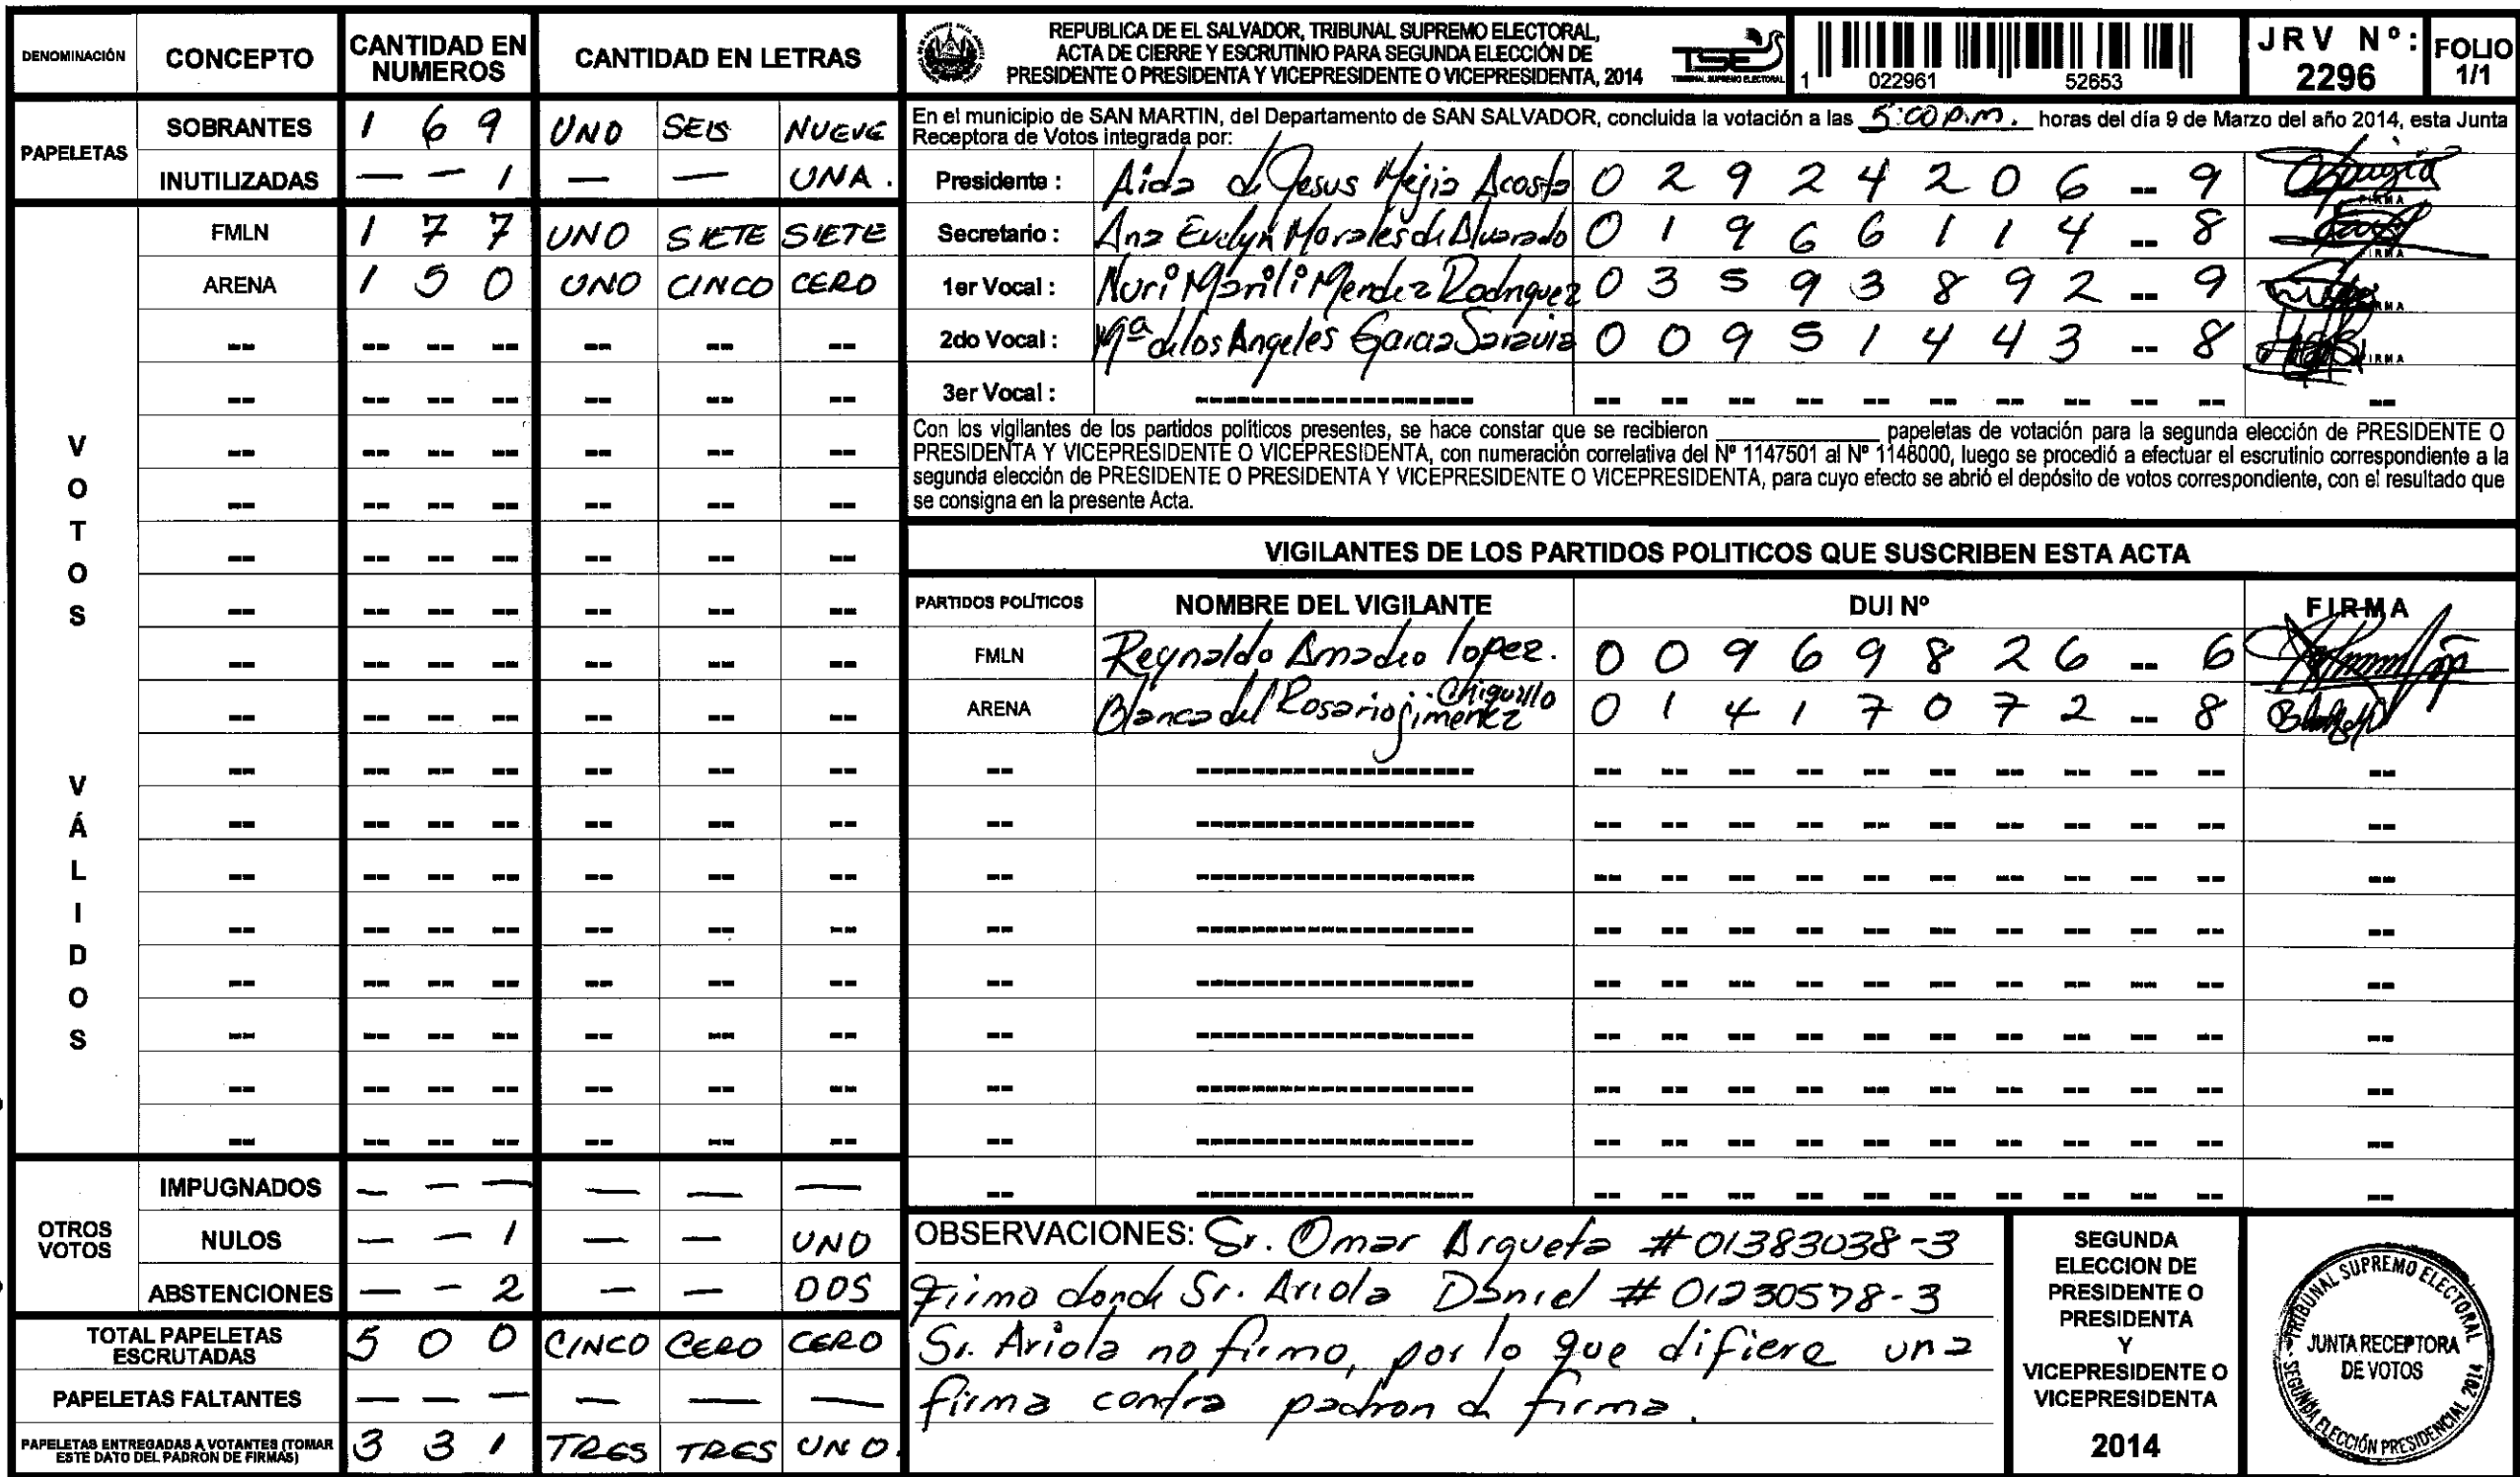 DENOMINACIÓN CONCEPTO CANTIDAD EN NUMEROS CANTIDAD EN LETRAS
PAPELETAS
SOBRANTES 1 6 9 UNO SEIS NUEVE
INUTILIZADAS — — 1 — — UNA.
VOTOS VÁLIDOS
FMLN 1 7 7 UNO SIETE SIETE
ARENA 1 5 0 UNO CINCO CERO
OTROS VOTOS
IMPUGNADOS — — — — — —
NULOS — — 1 — — UNO
ABSTENCIONES — — 2 — — DOS
TOTAL PAPELETAS ESCRUTADAS 5 0 0 CINCO CERO CERO
PAPELETAS FALTANTES — — — — — —
PAPELETAS ENTREGADAS A VOTANTES (TOMAR ESTE DATO DEL PADRON DE FIRMAS) 3 3 1 TRES TRES UNO.
REPUBLICA DE EL SALVADOR, TRIBUNAL SUPREMO ELECTORAL,
ACTA DE CIERRE Y ESCRUTINIO PARA SEGUNDA ELECCIÓN DE
PRESIDENTE O PRESIDENTA Y VICEPRESIDENTE O VICEPRESIDENTA, 2014
TSE
TRIBUNAL SUPREMO ELECTORAL
1 022961 52653
JRV Nº: 2296
FOLIO 1/1
En el municipio de SAN MARTIN, del Departamento de SAN SALVADOR, concluida la votación a las 5:00 p.m. horas del día 9 de Marzo del año 2014, esta Junta
Receptora de Votos integrada por:
Presidente : Aida de Jesus Mejia Acosta 0 2 9 2 4 2 0 6 -- 9 FIRMA
Secretario : Ana Evelyn Morales de Alvarado 0 1 9 6 6 1 1 4 -- 8 FIRMA
1er Vocal : Nuri Marili Mendez Rodriguez 0 3 5 9 3 8 9 2 -- 9 FIRMA
2do Vocal : Mª de los Angeles Garcia Saravia 0 0 9 5 1 4 4 3 -- 8 FIRMA
3er Vocal :
Con los vigilantes de los partidos politicos presentes, se hace constar que se recibieron ____________ papeletas de votación para la segunda elección de PRESIDENTE O
PRESIDENTA Y VICEPRESIDENTE O VICEPRESIDENTA, con numeración correlativa del Nº 1147501 al Nº 1148000, luego se procedió a efectuar el escrutinio correspondiente a la
segunda elección de PRESIDENTE O PRESIDENTA Y VICEPRESIDENTE O VICEPRESIDENTA, para cuyo efecto se abrió el depósito de votos correspondiente, con el resultado que
se consigna en la presente Acta.
VIGILANTES DE LOS PARTIDOS POLITICOS QUE SUSCRIBEN ESTA ACTA
PARTIDOS POLÍTICOS NOMBRE DEL VIGILANTE DUI Nº FIRMA
FMLN Reynaldo Amadeo lopez. 0 0 9 6 9 8 2 6 -- 6
ARENA Blanca del Rosario jimenez Chiquillo 0 1 4 1 7 0 7 2 -- 8
OBSERVACIONES: Sr. Omar Argueta # 01383038-3
Firmo donde Sr. Ariola Daniel # 01230578-3
Sr. Ariola no firmo, por lo que difiere una
firma contra padron de firma.
SEGUNDA
ELECCION DE
PRESIDENTE O
PRESIDENTA
Y
VICEPRESIDENTE O
VICEPRESIDENTA
2014
TRIBUNAL SUPREMO ELECTORAL
JUNTA RECEPTORA
DE VOTOS
SEGUNDA ELECCIÓN PRESIDENCIAL 2014